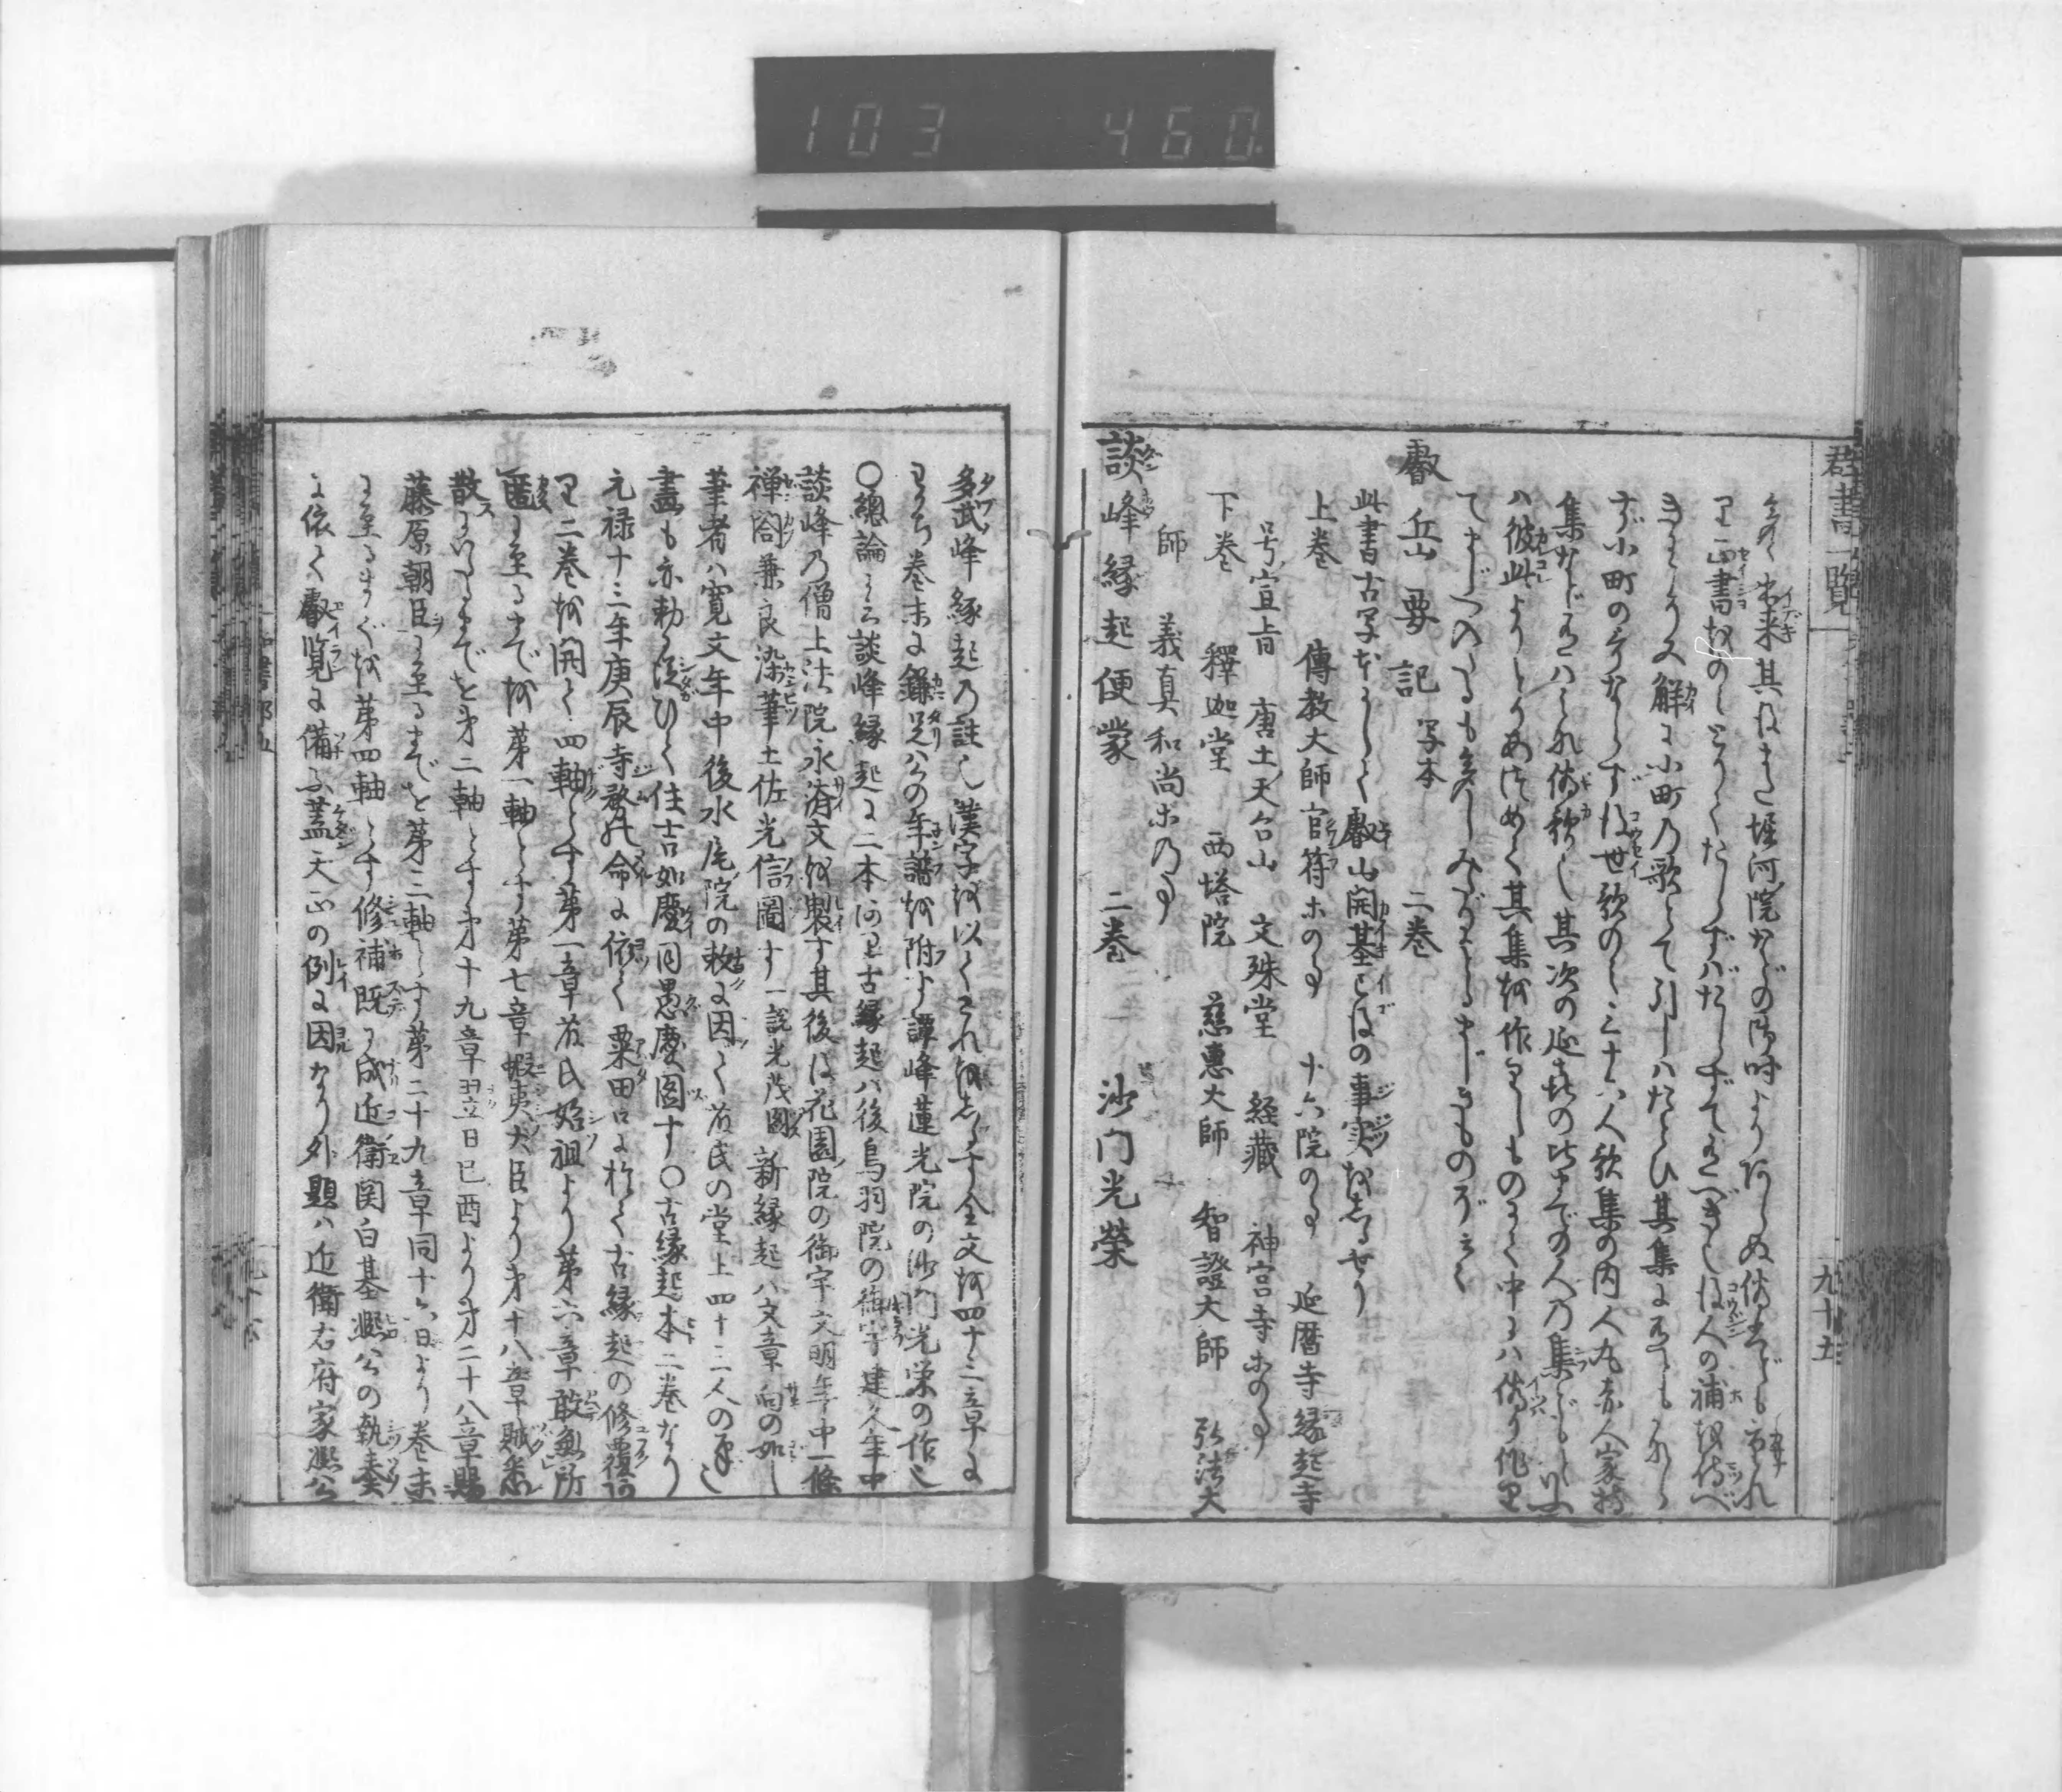 103 460
群書一覧
九十五
出来其後また堀河院などの御時よりあらぬ偽などもまれ
に正書をのみとりてたらずばたらずてあるべきを後人の補ひ侍べ
きこと又解に小町の歌とて引しはたとひ其集にありとも
ず小町の哥ならず後世歌のみ三十六人歌集の内人丸赤人家持
集などあるはみな偽歌也其次の延喜の比までの人の集どもといふ
は彼此よりとりあつめて其集を作りしものにて中には偽り作り
叡岳要記 写本 二巻
此書古写本にして叡山開基已後の事実をしるせり
上巻 傳教大師官符ホの事 十六院の事 延暦寺縁起寺
号宣旨 唐土天台山 文殊堂 経藏 神宮寺ホの事
下巻 釋迦堂 西塔院 慈惠大師 智證大師 弘法大
師 義真和尚ホの事
談峰縁起便蒙 二巻 沙門光榮
多武峰縁起乃註也漢字を以てこれをしるす全文を四十三章に
わかち巻末に鎌足公の年譜を附す譚峰蓮光院の沙門光栄の作也
○總論云談峰縁起に二本あり古縁起ハ後鳥羽院の御宇建久年中
談峰乃僧上法院永済文を製す其後後花園院の御宇文明年中一條
禅閤兼良染筆土佐光信圖す一説光茂圖新縁起ハ文章向の如し
筆者ハ寛文年中後水尾院の敕に因て藤氏の堂上四十三人の筆也
畫も亦勅に従ひて住吉如慶同愚慶図す○古縁起本二巻なり
元禄十三年庚辰寺務の命に依て粟田口に於て古縁起の修覆あ
り二巻を開て四軸とす第一章藤氏始祖より第六章敢無所
匿に至るまでを第一軸とす第七章蝦夷大臣より第十八章賊党
散にいたるまでを第二軸とす第十九章翌日己酉より第二十八章賜
藤原朝臣に至るまでを第三軸とす第二十九章同十六日より巻末
に至るまでを第四軸とす修補既に成近衛関白基煕公の執奏
に依て叡覧に備ふ蓋天正の例に因なり外題ハ近衛右府家煕公